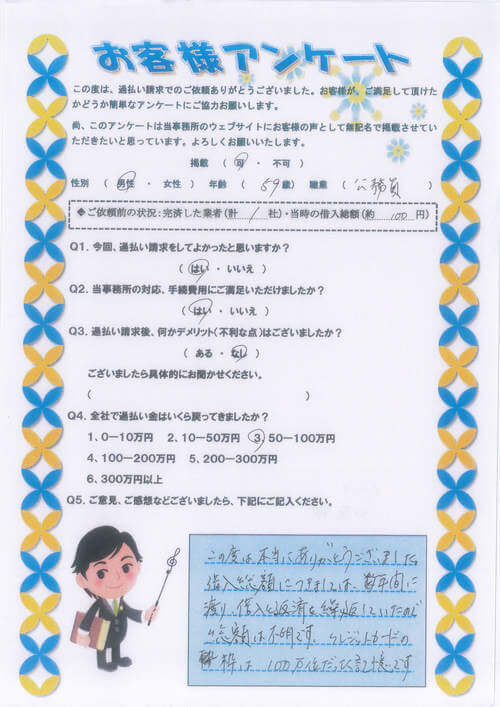 お客様アンケート
この度は、過払い請求でのご依頼ありがとうございました。お客様が、ご満足して頂けた
かどうか簡単なアンケートにご協力お願いします。
尚、このアンケートは当事務所のウェブサイトにお客様の声として無記名で掲載させてい
ただきたいと思っています。よろしくお願いいたします。
掲載 （ 可 ・ 不可 ）
性別 （ 男性 ・ 女性 ） 年齢 （ 59歳） 職業 （ 公務員 ）
◆ご依頼前の状況：完済した業者（計 1 社）・当時の借入総額（約 100 円）
Q1. 今回、過払い請求をしてよかったと思いますか？
（ はい ・ いいえ ）
Q2. 当事務所の対応、手続費用にご満足いただけましたか？
（ はい ・ いいえ ）
Q3. 過払い請求後、何かデメリット（不利な点）はございましたか？
（ ある ・ なし ）
ございましたら具体的にお聞かせください。
（ ）
Q4. 全社で過払い金はいくら戻ってきましたか？
1. 0－10万円 2. 10－50万円 3. 50－100万円
4. 100－200万円 5. 200－300万円
6. 300万円以上
Q5. ご意見、ご感想などございましたら、下記にご記入ください。
この度は本当にありがとうございました。
借入総額につきましては、数年間に
渡り、借入と返済を繰返していたので
総額は不明です。クレジットカードの
枠は、100万位だったと記憶です